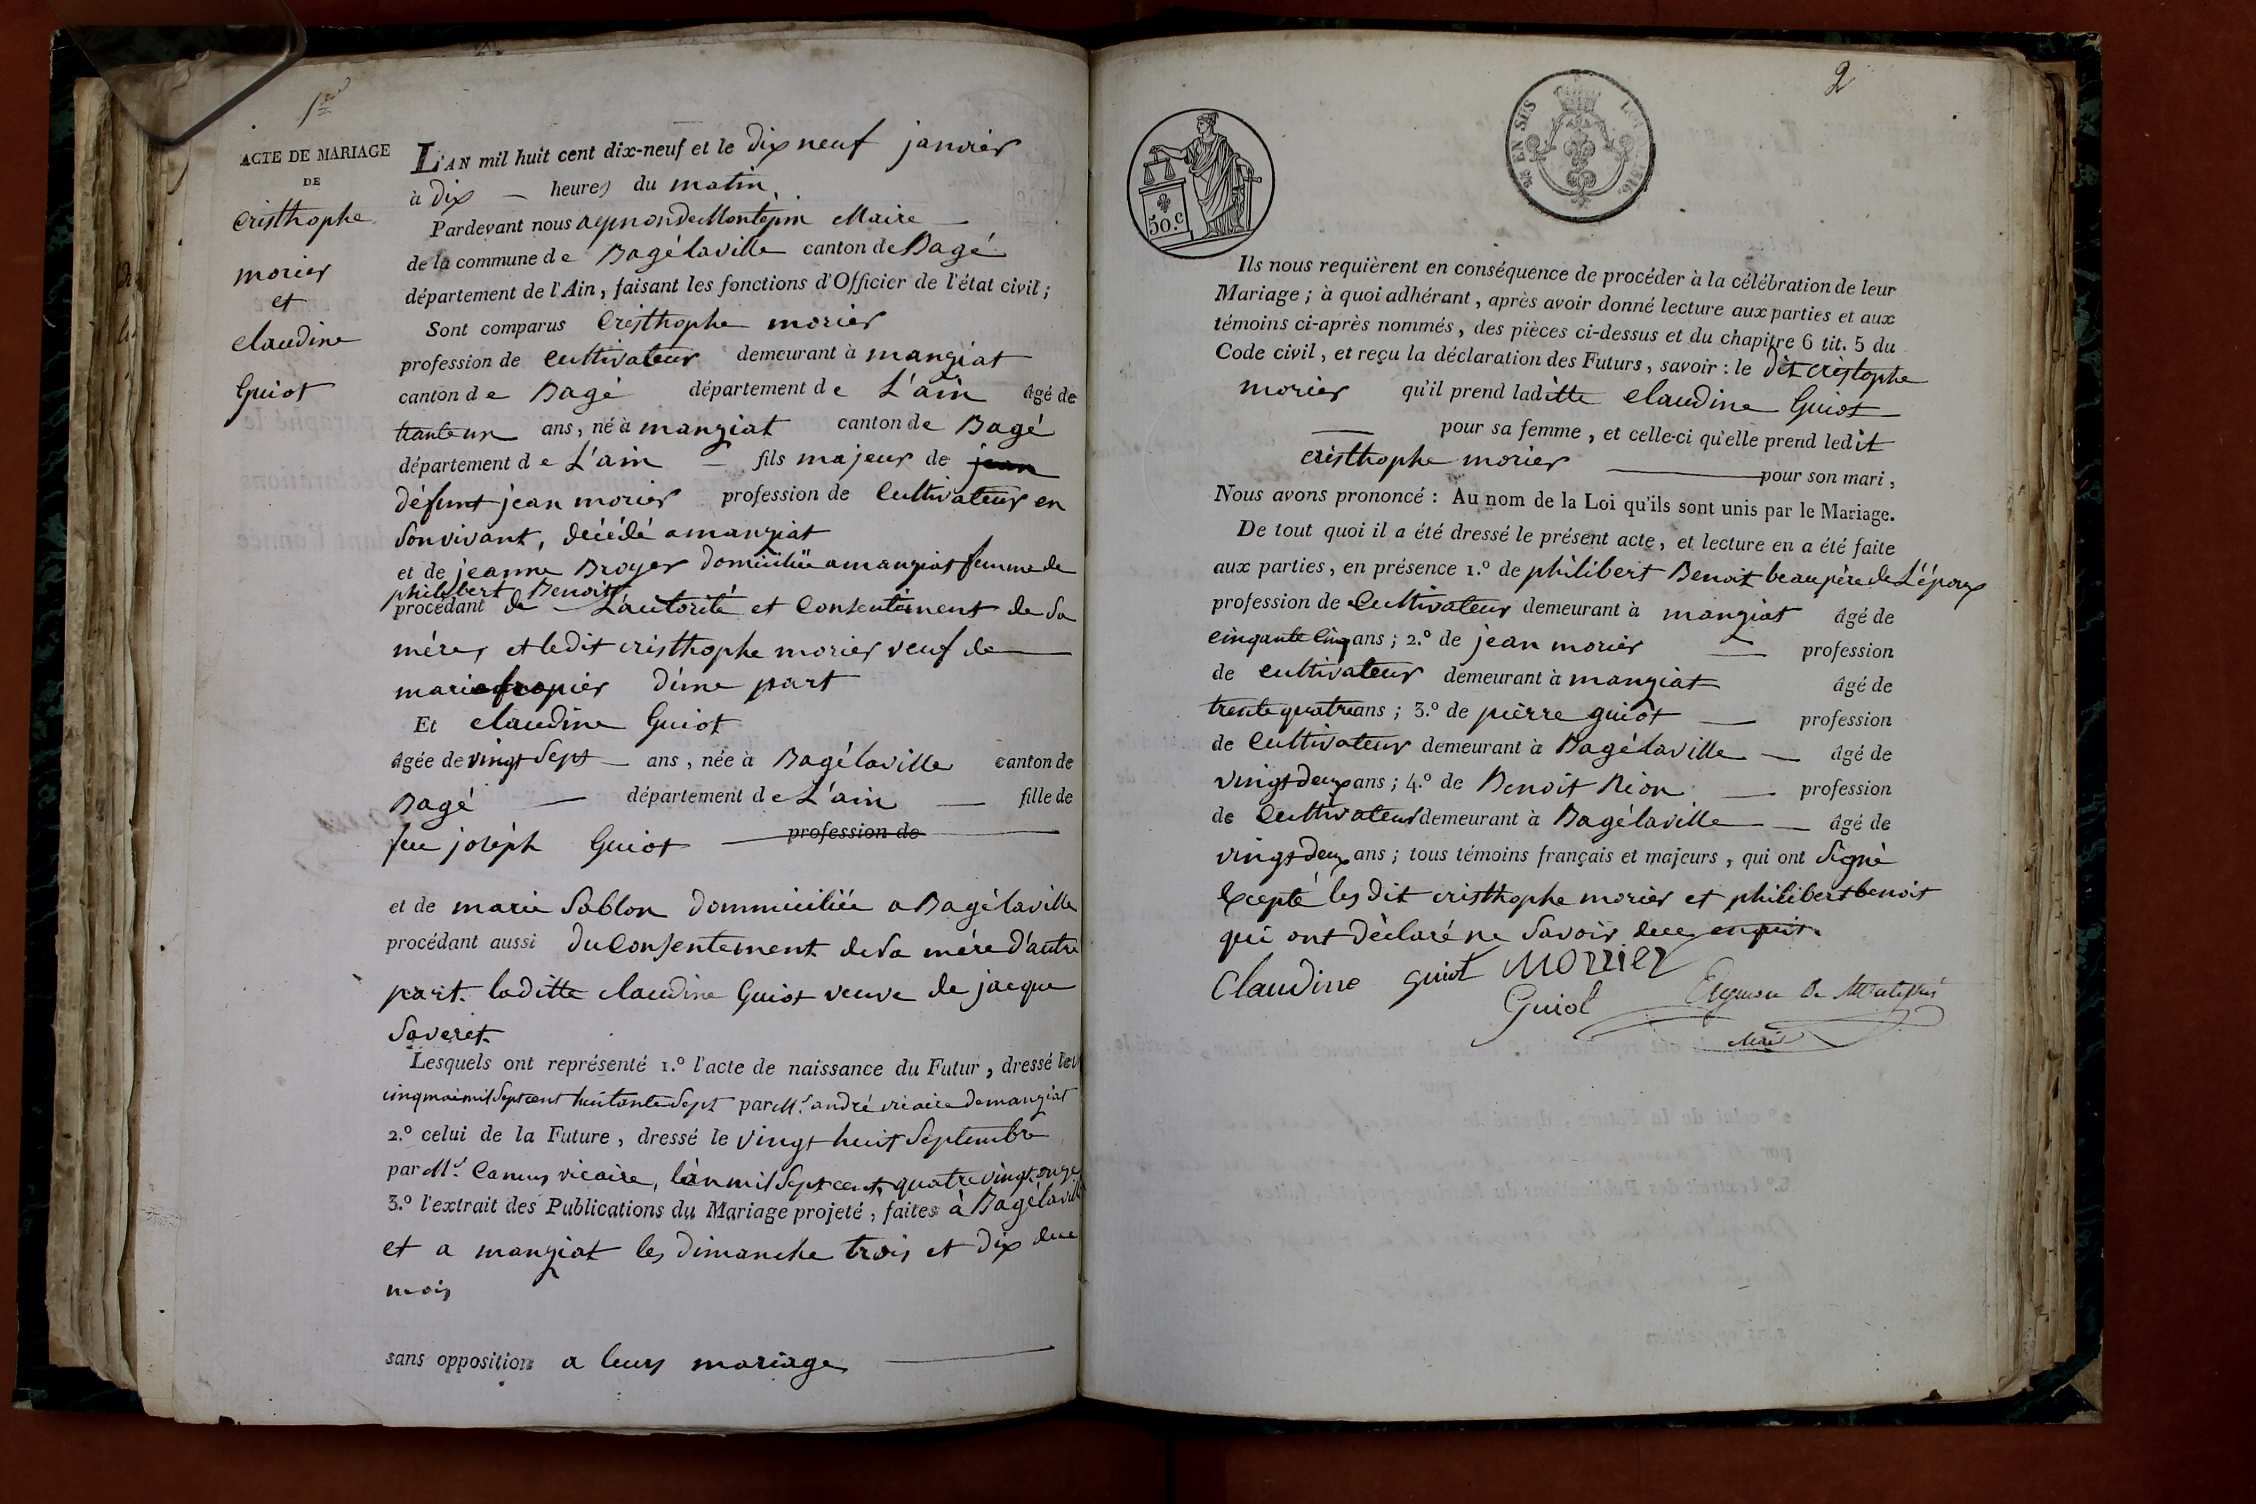 1re
ACTE DE MARIAGE
DE
Cristhophe
morier
et
claudine
Guiot
L'AN mil huit cent dix-neuf et le dix neuf janvier
à dix heures du matin
Pardevant nous aymon de Montépin Maire
de la commune de Bagélaville canton de Bagé
département de l'Ain, faisant les fonctions d'Officier de l'état civil;
Sont comparus Cristhophe morier
profession de Cultivateur demeurant à manziat
canton de Bagé département de L'ain âgé de
trante un ans, né à manziat canton de Bagé
département de L'ain fils majeur de jean
défunt jean morier profession de Cultivateur en
son vivant, décédé a manziat
et de jeanne Broyer domiciliée a manziat femme de
philibert Benoit
procédant de L'autorité et Consentement de Sa
mère, et ledit cristhophe morier veuf de
marie d'une part
Et claudine Guiot
âgée de vingt Sept ans, née à Bagélaville canton de
Bagé département de L'ain fille de
feu joséph Guiot profession de
et de marie Sablon dommiciliée a Bagélaville
procédant aussi du Consentement de Sa mére d'autre
part. laditte claudine Guiot veuve de jacque
Saveret.
Lesquels ont représenté 1.º l'acte de naissance du Futur, dressé le
cinq mai mil Sept cent huitante Sept par Mr. andré vicaire de manziat
2.º celui de la Future, dressé le vingt huit Septembre
par Mr. Camus vicaire, l'an mil Sept cent quatre vingt onze
3.º l'extrait des Publications du Mariage projeté, faites à Bagélaville
et a manziat les dimanche trois et dix due
mois
sans opposition a leur mariage
2
25 EN SUS
50.c
Ils nous requièrent en conséquence de procéder à la célébration de leur
Mariage; à quoi adhérant, après avoir donné lecture aux parties et aux
témoins ci-après nommés, des pièces ci-dessus et du chapitre 6 tit. 5 du
Code civil, et reçu la déclaration des Futurs, savoir: le dit cristophe
morier qu'il prend laditte claudine Guiot
pour sa femme, et celle-ci qu'elle prend ledit
cristhophe morier pour son mari,
Nous avons prononcé: Au nom de la Loi qu'ils sont unis par le Mariage.
De tout quoi il a été dressé le présent acte, et lecture en a été faite
aux parties, en présence 1.º de philibert Benoit beaupère de L'époux
profession de Cultivateur demeurant à manziat âgé de
cinquante Cinq ans; 2.º de jean morier profession
de cultivateur demeurant à manziat âgé de
trente quatre ans; 3.º de pierre guiot profession
de Cultivateur demeurant à Bagélaville âgé de
vingt deux ans; 4.º de Benoit Réon profession
de Cultivateur demeurant à Bagélaville âgé de
vingt deux ans; tous témoins français et majeurs, qui ont Signé
Excepté les dit cristhophe morier et philibert benoit
qui ont déclaré ne Savoir
Claudine guiot Morier
Guiot
Maire